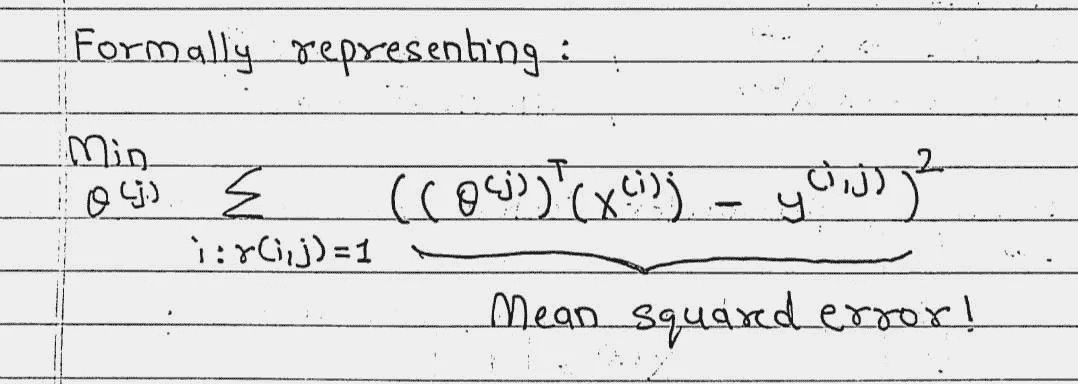 Formally representing :
Min
θ(j) Σ ((θ(j))ᵀ(x(i)) - y(i,j))²
i : r(i,j)=1
Mean squared error!